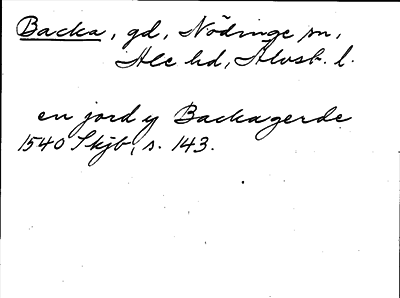 Backa, gd, Nödinge sn,
Ale hd, Älvsb. l.
en jord y Backagerde
1540 Skjb, s. 143.